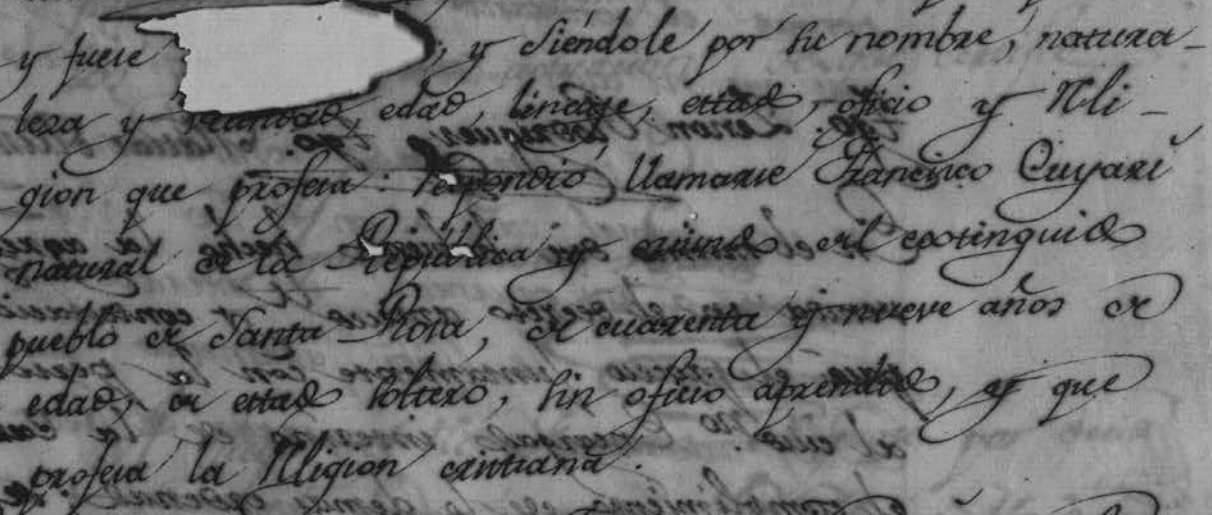 y fuese y siéndole por su nombre, natura-
leza y edad, linaje, estado, oficio y Reli-
gion que profesa: respondió llamarse Francisco Cuyari
natural de la República y del extinguido
pueblo de Santa Rosa, de cuarenta y nueve años de
edad, de estado soltero, sin oficio aprendido, y que
profesa la Religion cristiana.